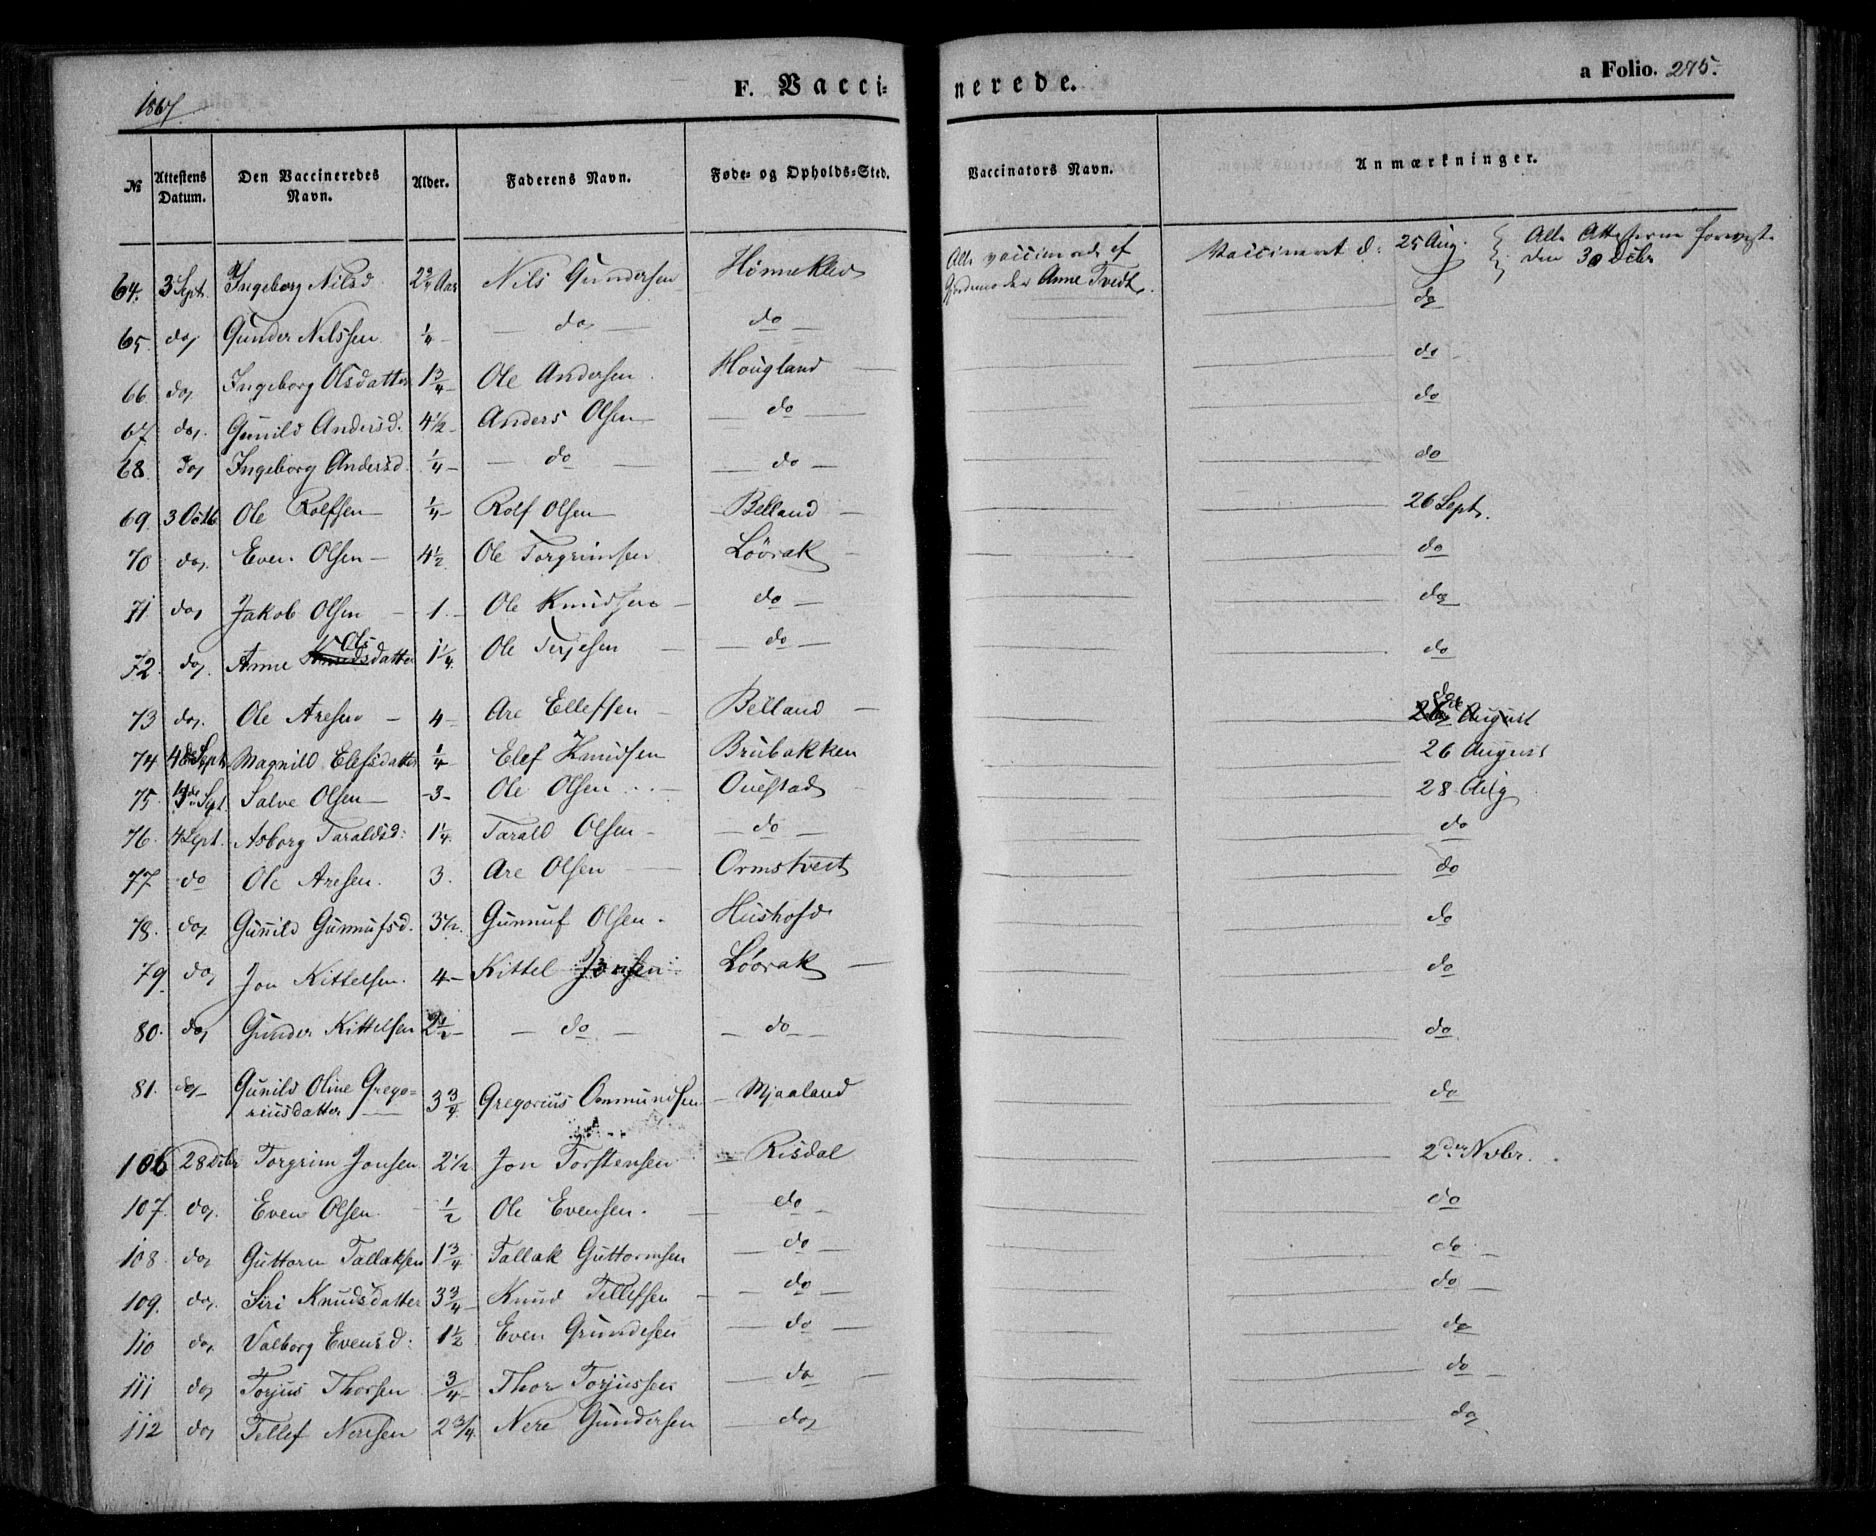 a Folio. 275.
1867.
F. Vaccinerede.
№ | Attestens Datum. | Den Vaccineredes Navn. | Alder. | Faderens Navn. | Føde- og Opholds-Sted. | Vaccinators Navn. | Anmærkninger.
64. 3 Sept. Ingeborg Nilsd. Aar Nils Gundersen Alle vaccinerede af Anne Tvedt. Vaccineret d: 25 Aug. Alle Attesterne foreviste den 30 Debr
65. do Gunder Nilssen ¼ do do do
66. do Ingeborg Olsdatter 1¾ Ole Andersen Hougland do
67. do. Gunild Andersd. 4½ Anders Olsen do do
68 do Ingeborg Andersd. ¼ do do do
69. 3 Octb. Ole Rolfsen ¼ Rolf Olsen Belland 26 Sept.
70 do. Even Olsen 4½ Ole Torgrimsen Løvrak do
71 do Jakob Olsen 1. Ole Knudsen do do
72. do. Anne Olsdatter 1¼ Ole Terjesen do do
73 do. Ole Aresen 4 Are Ellefsen Belland do August
74 4de Sept. Magnild Elefsdatter ¼ Elef Knudsen Brubakken 26 August
75. 4de Sept. Salve Olsen 3 Ole Olsen Ouestad 28 Aug
76. 4 Sept. Asborg Taraldsd: 1¼ Tarald Olsen do do
77. do Ole Aresen. 3. Are Olsen Ormstvedt do
78. do. Gunild Gunnufsd. 3½. Gunnuf Olsen. Hushofd do
79. do Jon Kittelsen. 4 Kittel Jonsen Løvrak do
80. do Gunder Kittelsen 2½ do do do
81. do Gunild Oline Gregoriusdatter 3¾ Gregorius Ommundsen Mjaaland do
106 28 Debr Torgrim Jonsen 2½ Jon Torstensen Risdal 2den Novbr.
107. do. Even Olsen. ½ Ole Evensen. do do
108. do Guttorm Tallaksen 1¾ Tallak Guttormsen do do
109. do. Siri Knudsdatter 3¾ Knud Tellefsen do do
110 do. Valborg Evensd: 1½ Even Grundesen do do
111 do Torjus Thorsen ¾ Thor Torjussen do do
112 do Tellef Neresen 2¾. Nere Gundersen do do